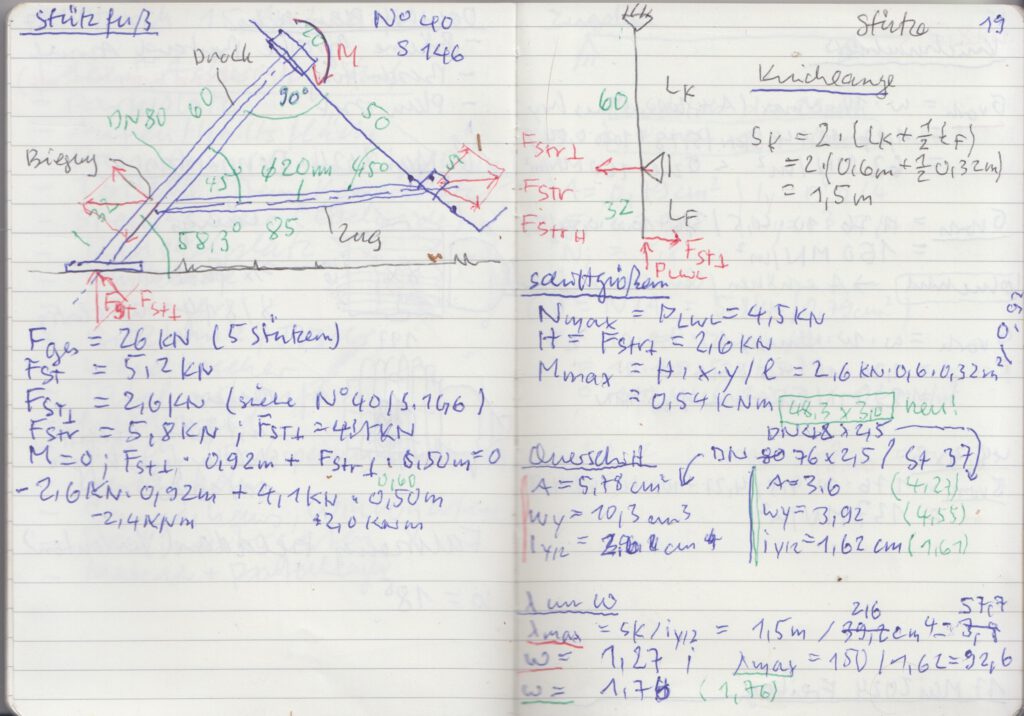 Stützfuß
N° 40
S 146
Druck
M
90°
DN80
60
50
Biegung
45
φ20mm
45°
58,3°
85
Zug
FSt⊥
Fges = 26 KN (5 Stützen)
FSt = 5,2 KN
FSt⊥ = 2,6 KN (siehe N°40/S.146)
FStr = 5,8 KN ; FSt⊥ = 4,1 KN
M=0 ; FSt⊥ · 0,92m + FStr⊥ · 0,50m = 0
0,60
- 2,6 KN · 0,92m + 4,1 KN · 0,50m
-2,4 KNm +2,0 KNm
Stütze 19
LK
60
FStr⊥
FStr
FStrH
32
LF
FSt⊥
PLWL
Knicklänge
SK = 2 · (LK + 1/2 LF)
= 2 · (0,6m + 1/2 0,32m)
= 1,5m
Schnittgrößen
Nmax = PLWL = 4,5 KN
H = FStr⊥ = 2,6 KN
Mmax = H · x · y / l = 2,6 KN · 0,6 · 0,32m² / 0,92
= 0,54 KNm
48,3 x 3,0 neu!
DN 48 x 2,5
Querschnitt
DN 80 76 x 2,5 / St 37
A = 5,78 cm²
A = 3,6 (4,27)
Wy = 10,3 cm³
Wy = 3,92 (4,55)
iy/z = 2,6 cm
iy/z = 1,62 cm (1,61)
λ und ω
2,6 57,7
λmax = SK / iy/z = 1,5m / 39,2 cm⁴ =
ω = 1,27 ; λmax = 150 / 1,62 = 92,6
ω = 1,76 (1,76)